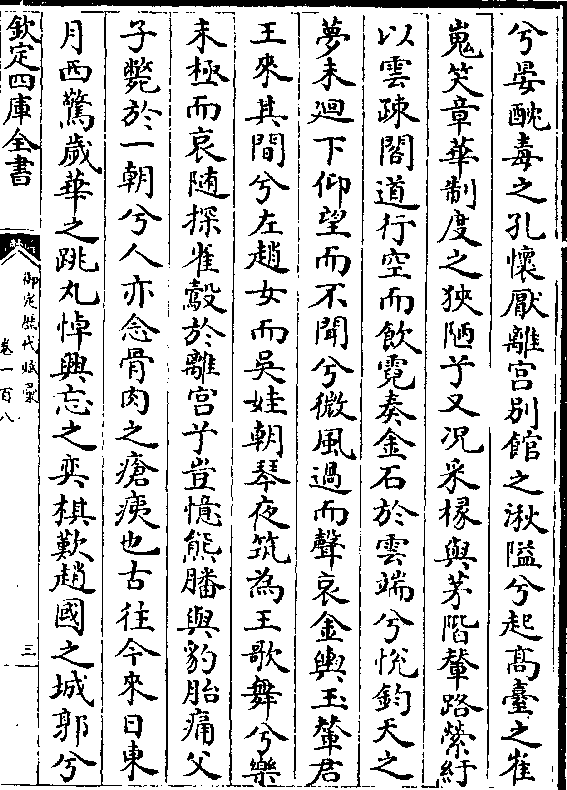 兮晏酖毒之孔懷厭離宫别館之湫隘兮起髙臺之崔
嵬笑章華制度之狹陋兮又况采椽與茅階輦路縈紆
以雲疎閣道行空而飲霓奏金石於雲端兮恱鈞天之
夢未廻下仰望而不聞兮微風過而聲哀金輿玉輦君
王來其間兮左趙女而吳娃朝琴夜筑為王歌舞兮樂
未極而哀随探雀鷇於離宫兮豈憶熊膰與豹胎痛父
子斃於一朝兮人亦念骨肉之瘡痍也古往今來日東
月西驚歲華之跳丸悼興忘之奕棋歎趙國之城郭兮
欽定四庫全書
御定歴代賦彚
卷一百八
三